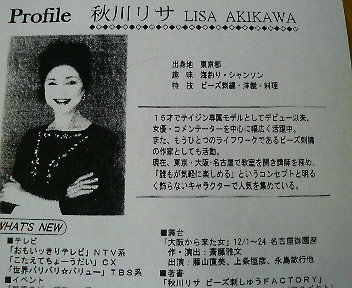 Profile 秋川リサ LISA AKIKAWA
出身地 東京都
趣 味 海釣り・シャンソン
特 技 ビーズ刺繍・洋裁・料理
15才でテイジン専属モデルとしてデビュー以来、
女優・コメンテーターを中心に幅広く活躍中。
また、もうひとつのライフワークであるビーズ刺繍
の作家としても活動。
現在、東京・大阪・名古屋で教室を開き講師を務め、
「誰もが気軽に楽しめる」というコンセプトと明る
く飾らないキャラクターで人気を集めている。
WHAT'S NEW
■テレビ
「おもいッきりテレビ」NTV系
「こたえてちょーうだい」CX
「世界バリバリ☆バリュー」TBS系
■イベント
■舞台
「大阪から来た女」12/1～24 名古屋御園座
作・演出：斎藤雅文
出演：藤山直美、上条恒彦、永島敏行他
■著書
「秋川リサ ビーズ刺しゅうFACTORY」